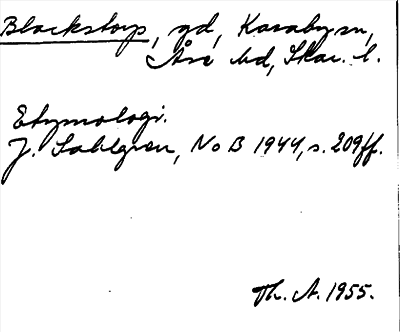 Blackstorp, gd, Karaby sn,
Åse hd, Skar. l.
Etymologi.
J. Sahlgren, NoB 1944, s. 209ff.
Th. A. 1955.